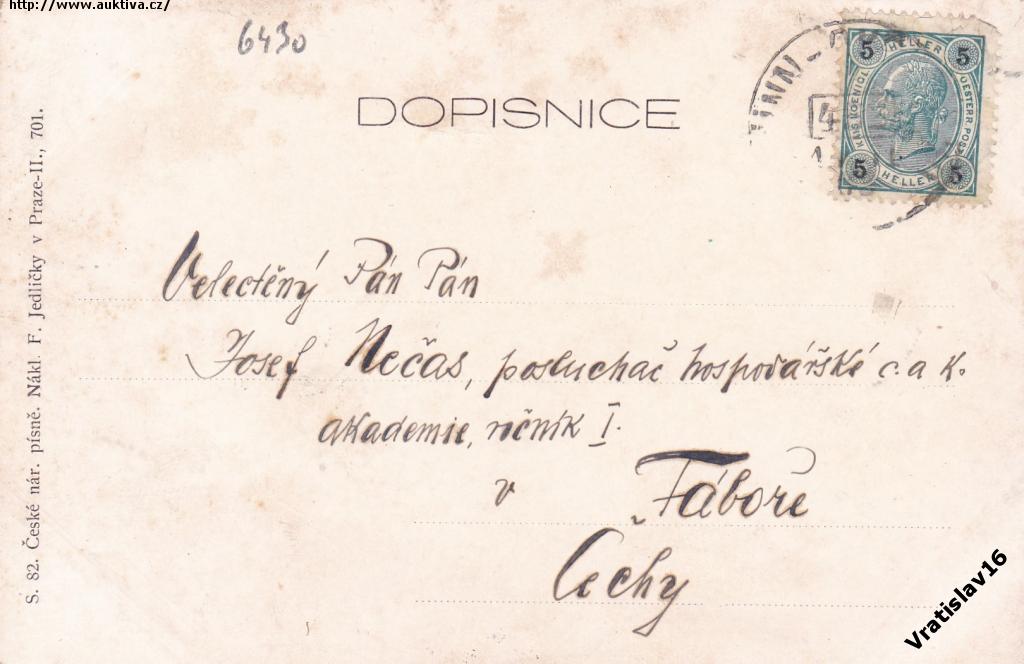 http://www.auktiva.cz/
6430
DOPISNICE
5 HELLER 5
KAIS KOENIGL
OESTERR POST
5 HELLER 5
Velectěný Pán Pán
Josef Nečas, posluchač hospodářské c. a k.
akademie, ročník I.
v Táboře
Čechy
S. 82. České nár. písně. Nákl. F. Jedličky v Praze-II., 701.
Vratislav16